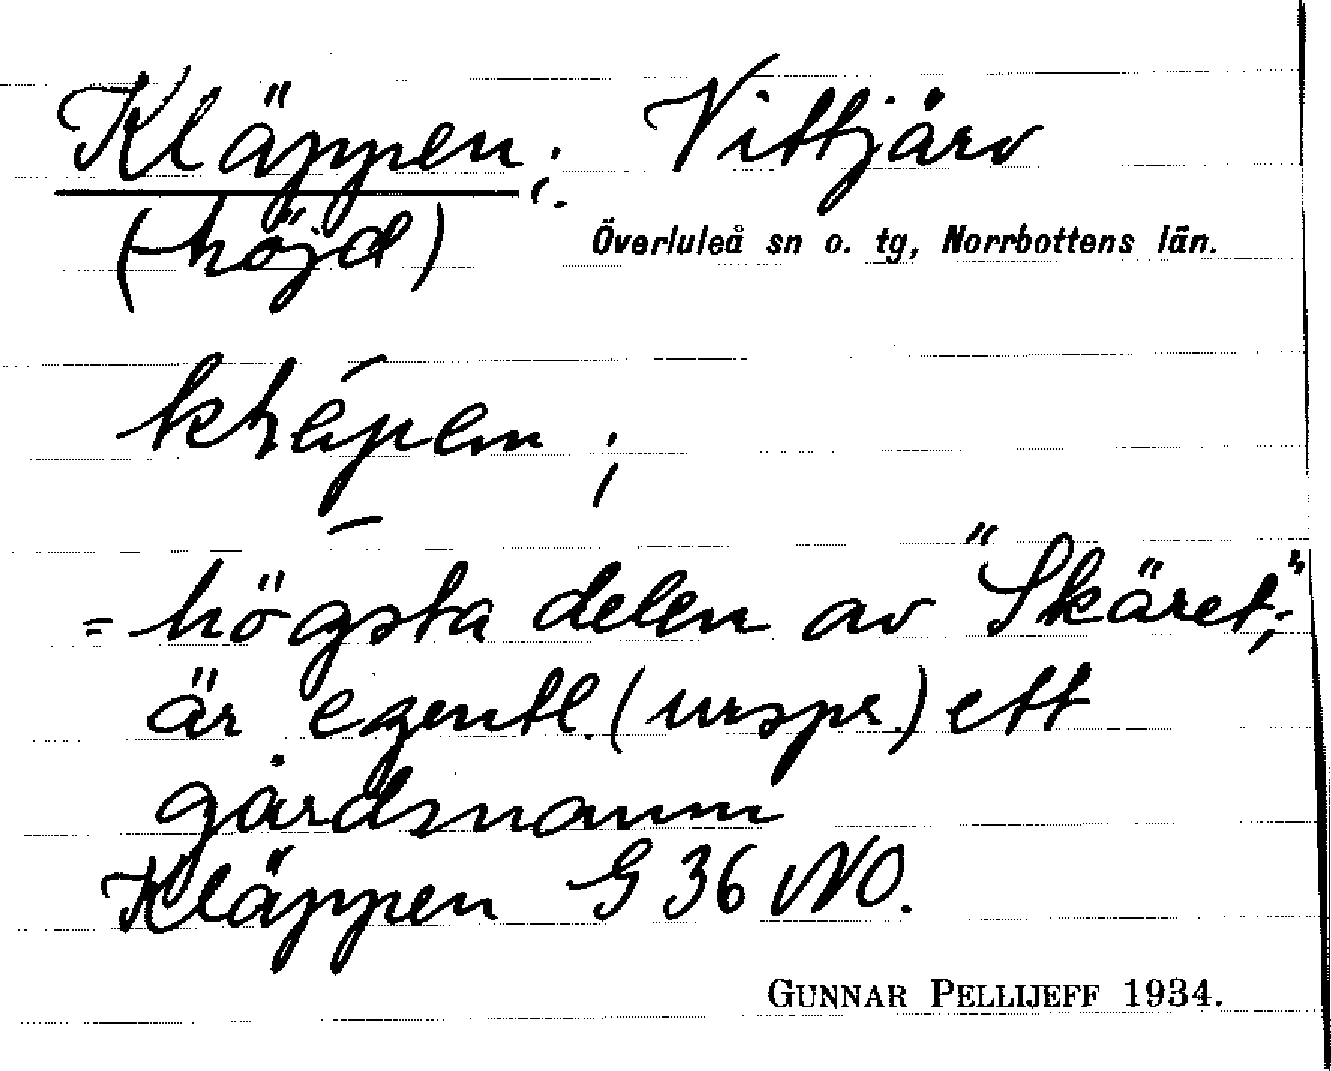 Kläppen; Vittjärv
(-höjd)
Överluleå sn o. tg, Norrbottens län.
= högsta delen av "Skäret";
är egentl. (urspr.) ett
gårdsnamn
Kläppen G 36 NO.
GUNNAR PELLIJEFF 1934.